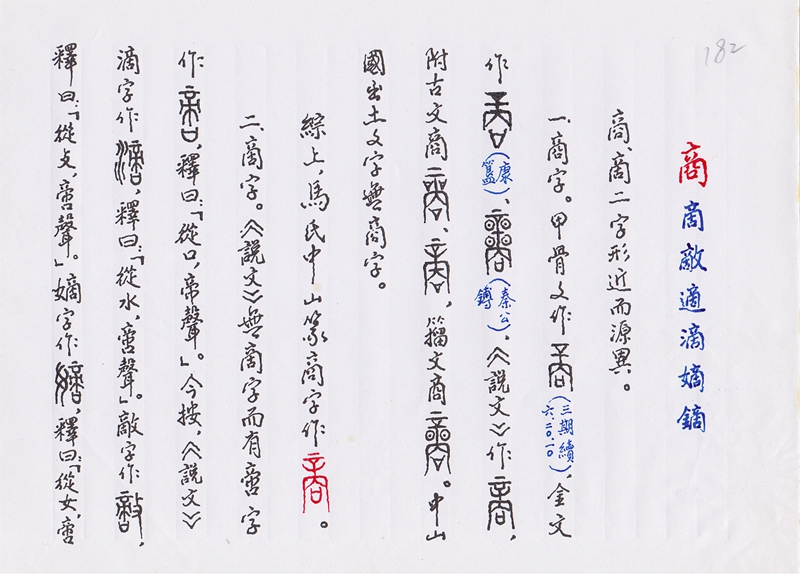 182
商 啇敵適滴嫡鏑
商、啇二字形近而源異。
一、商字。甲骨文作(三期續六.二〇.一〇),金文
作(康簋)、(秦公鎛),《說文》作,
附古文商、,籀文商。中山
國出土文字無商字。
綜上,馬氏中山篆商字作。
二、啇字。《說文》無啇字而有啻字
作,釋曰:「從口,帝聲」。今按,《說文》
滴字作,釋曰:「從水,啻聲」。敵字作,
釋曰:「從攴,啻聲」。嫡字作,釋曰:「從女,啻